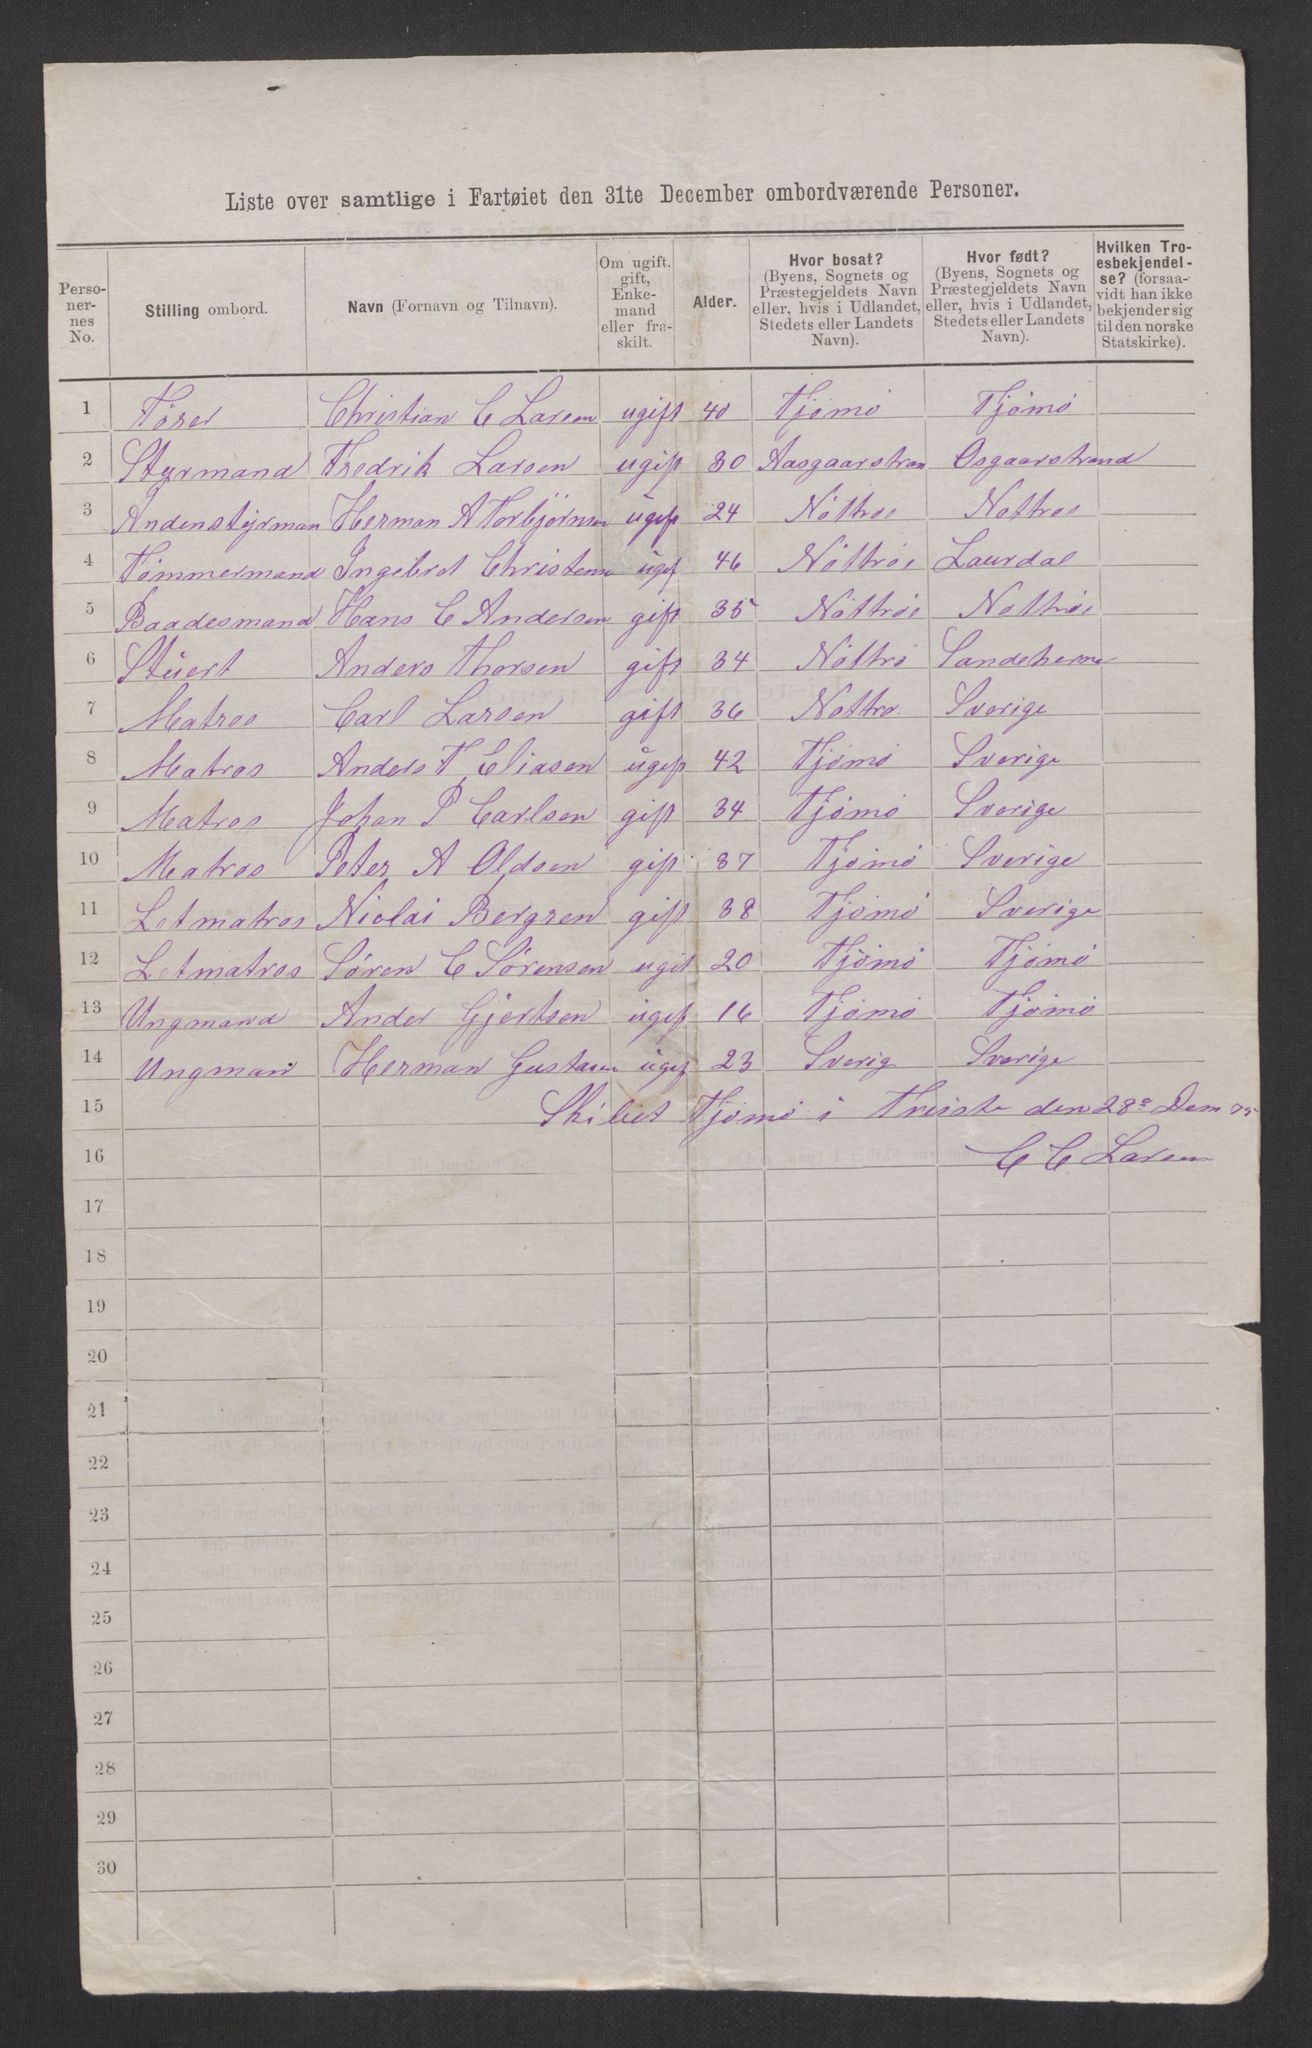 Liste over samtlige i Fartøiet den 31te December ombordværende Personer.
Perso-
ner-
nes
No.
Stilling ombord.
Navn (Fornavn og Tilnavn).
Om ugift,
gift,
Enke-
mand
eller fra-
skilt.
Alder.
Hvor bosat?
(Byens, Sognets og
Præstegjeldets Navn
eller, hvis i Udlandet,
Stedets eller Landets
Navn).
Hvor født?
(Byens, Sognets og
Præstegjeldets Navn
eller, hvis i Udlandet,
Stedets eller Landets
Navn).
Hvilken Tro-
esbekjendel-
se? (forsaa-
vidt han ikke
bekjender sig
til den norske
Statskirke).
1 Förer Christian C Larsen ugift 40 Tjömö Tjömö
2 Styrmand Fredrik Larsen ugift 30 Aasgaarstran Osgaarstrand
3 Andenstyrman Herman A Torbjörnsen ugift 24 Nöttröe Nottröe
4 Tömmermand Ingebret Christensen ugif 46 Nöttröe Laurdal
5 Baadesmand Hans C Andersen gift 35 Nöttröe Nottröe
6 Stuert Anders Thorsen gift 34 Nöttrö Sandeherne
7 Matros Carl Larsen gift 36 Nottrö Sverige
8 Matros Anders T Eliasen ugift 42 Tjömö Sverige
9 Matros Johan P Carlsen gift 34 Tjömö Sverige
10 Matros Peter A Oldsen gift 37 Tjömö Sverige
11 Letmatros Niolai Bergsen gift 38 Tjömö Sverige
12 Letmatros Sören C Sörensen ugift 20 Tjömö Tjömö
13 Ungmand Ander Gjertsen ugift 16 Tjömö Tjömö
14 Ungman Herman Gustasen ugift 23 Sverig Sverige
15 Skibet Tjömö i Trieste den 28e Dem 75
16 C C Larsen
17
18
19
20
21
22
23
24
25
26
27
28
29
30